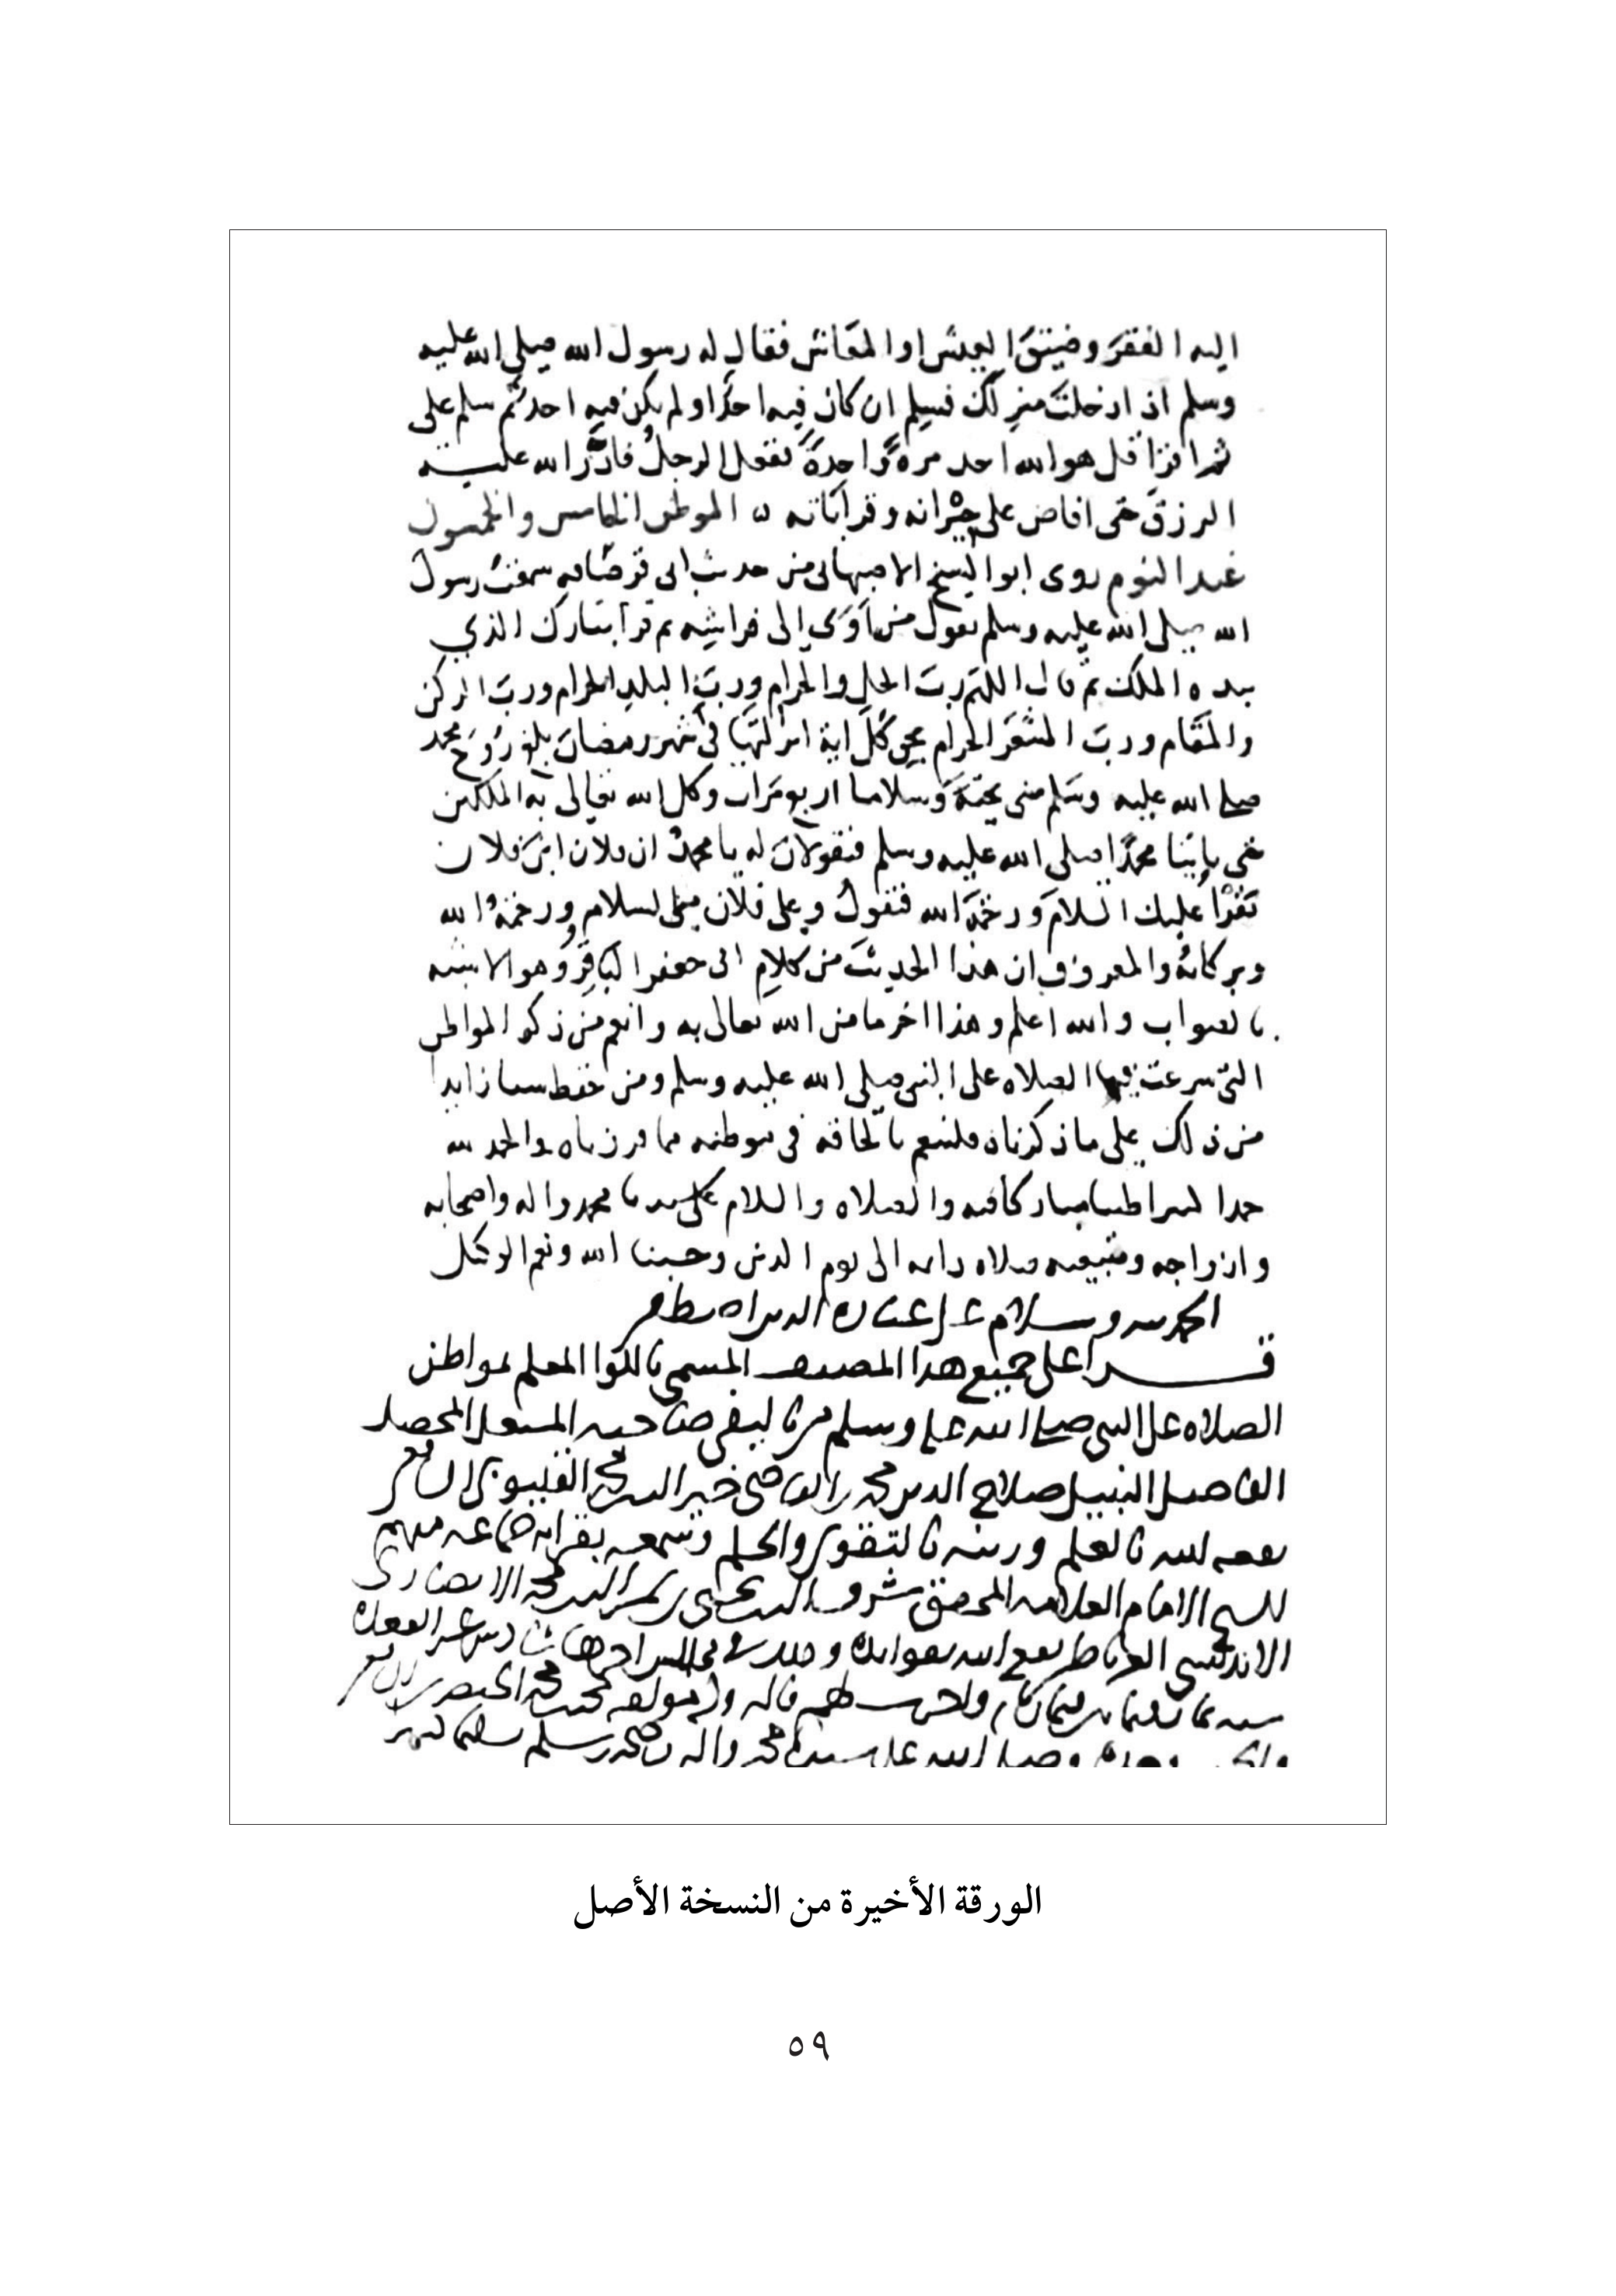 اليه الفقرَ وضيقَ العيش او المعَاش فقال له رسول الله صلى الله عليه
وسلم اذا دخلتَ منزلك فسلِم ان كان فيه احدٌ او لم يكن فيه احد ثم سلم على
ثم اقرا قل هو الله احد مرةً واحدةً ففعل الرجلُ فادرَّ الله عليه
الرزقَ حتى افاض على جيرانه وقراباته ۵ الموطن الخامس والخمسون
عند النوم روى ابو الشيخ الاصبهاني من حديث ابي قرصَافه سمعتُ رسول
الله صلى الله عليه وسلم يقول من اَوَى الى فراشِه ثم قرا تبارك الذي
بيده الملك ثم قال اللهم ربَّ الحل والحرام وربَّ البلد الحرام وربَّ الركن
والمقَام وربَّ المشعَر الحرام بحق كل اية انزلتَها في شهر رمضان بلغ رُوحَ محمد
صلى الله عليه وسلم مني تحيَّةً وسلاما اربع مَرات وكل الله تعالى به الملكين
حتى ياتيَا محمدًا صلى الله عليه وسلم فيقولان له يا محمدُ ان فلان ابن فلان
يَقْرَا عليك السلامَ ورحمَةَ الله فيقولُ وعلى فلان مني السلام ورحمةُ الله
وبركاتهُ والمعروف ان هذا الحديثَ من كلام ابي جعفر الباقِر وهو الاشبه
بالصواب والله اعلم وهذا اخر ما من الله تعالى به وانعم من ذكر المواطن
التي شرعت فيها الصلاه على النبي صلى الله عليه وسلم ومن حفظ شيا زايدا
من ذلك على ما ذكرناه فلينعم بالحاقه في موطنه مما قررناه والحمد لله
حمدا كثيرا طيبا مباركا فيه والصلاه والسلام على سيدنا محمد واله واصحابه
وازواجه ومتبعيه صلاه دايمه الى يوم الدين وحسبنا الله ونعم الوكيل
الحمد لله وسلام على عباده الذين اصطفى
قرا على جميع هذا المصنف المسمى باللوا المعلم بمواطن
الصلاه على النبي صلى الله عليه وسلم من تاليفي صاحبه المشتغل المحصل
الفاضل النبيل صلاح الدين محمد القاضي خير الدين محمد القليوبي الشافعي
نفعه الله بالعلم وزينه بالتقوى والحلم وسمعه بقراته جماعه منهم
الشيخ الامام العلامه المحقق شرف الدين يحيى محمد الانصاري
الاندلسي الغرناطي نفع الله بفوايده وذلك في مجالس اخرها ثاني عشر القعده
سنه ثمان وثمانين وثمان مايه واجزت لهم قاله مؤلفه محمد محمد الخيضري الشافعي
وصلى الله على سيدنا محمد واله وصحبه وسلم تسليما كثيرا
الورقة الأخيرة من النسخة الأصل
٥٩